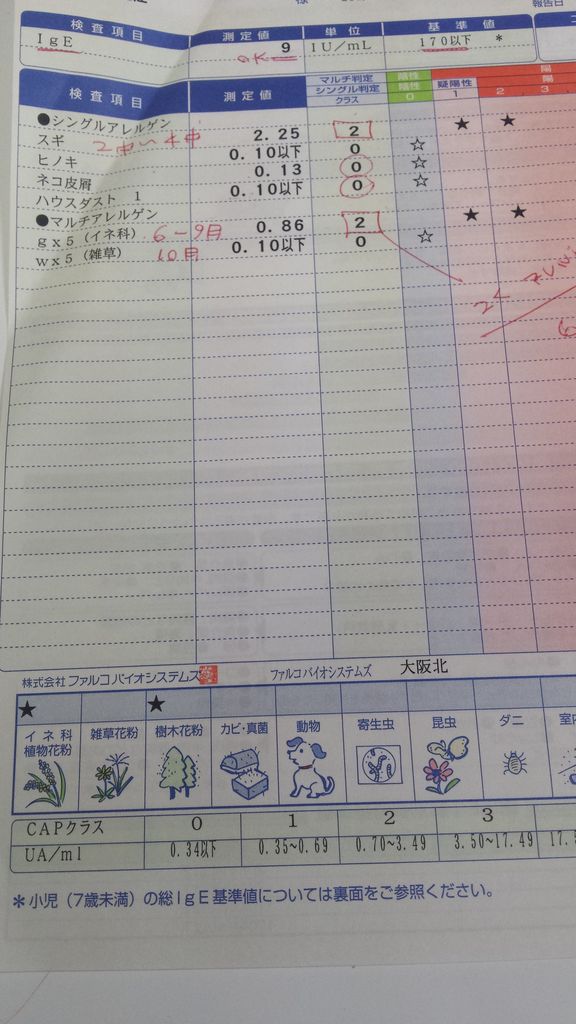 様
報告日
検査項目 測定値 単位 基準値
IgE 9 IU/mL 170以下 *
OK
検査項目 測定値 マルチ判定 シングル判定 クラス 陰性 陰性 0 疑陽性 1 陽 陽 2 3
●シングルアレルゲン
スギ 2中〜4中 2.25 2 ★ ★
ヒノキ 0.10以下 0 ☆
ネコ皮屑 0.13 0 ☆
ハウスダスト 1 0.10以下 0 ☆
●マルチアレルゲン
gx5（イネ科） 6-9月 0.86 2 ★ ★
wx5（雑草） 10月 0.10以下 0 ☆
株式会社 ファルコバイオシステムズ ファルコバイオシステムズ 大阪北
★ ★
イネ科植物花粉 雑草花粉 樹木花粉 カビ・真菌 動物 寄生虫 昆虫 ダニ
CAPクラス 0 1 2 3
UA/ml 0.34以下 0.35~0.69 0.70~3.49 3.50~17.49
*小児（7歳未満）の総IgE基準値については裏面をご参照ください。